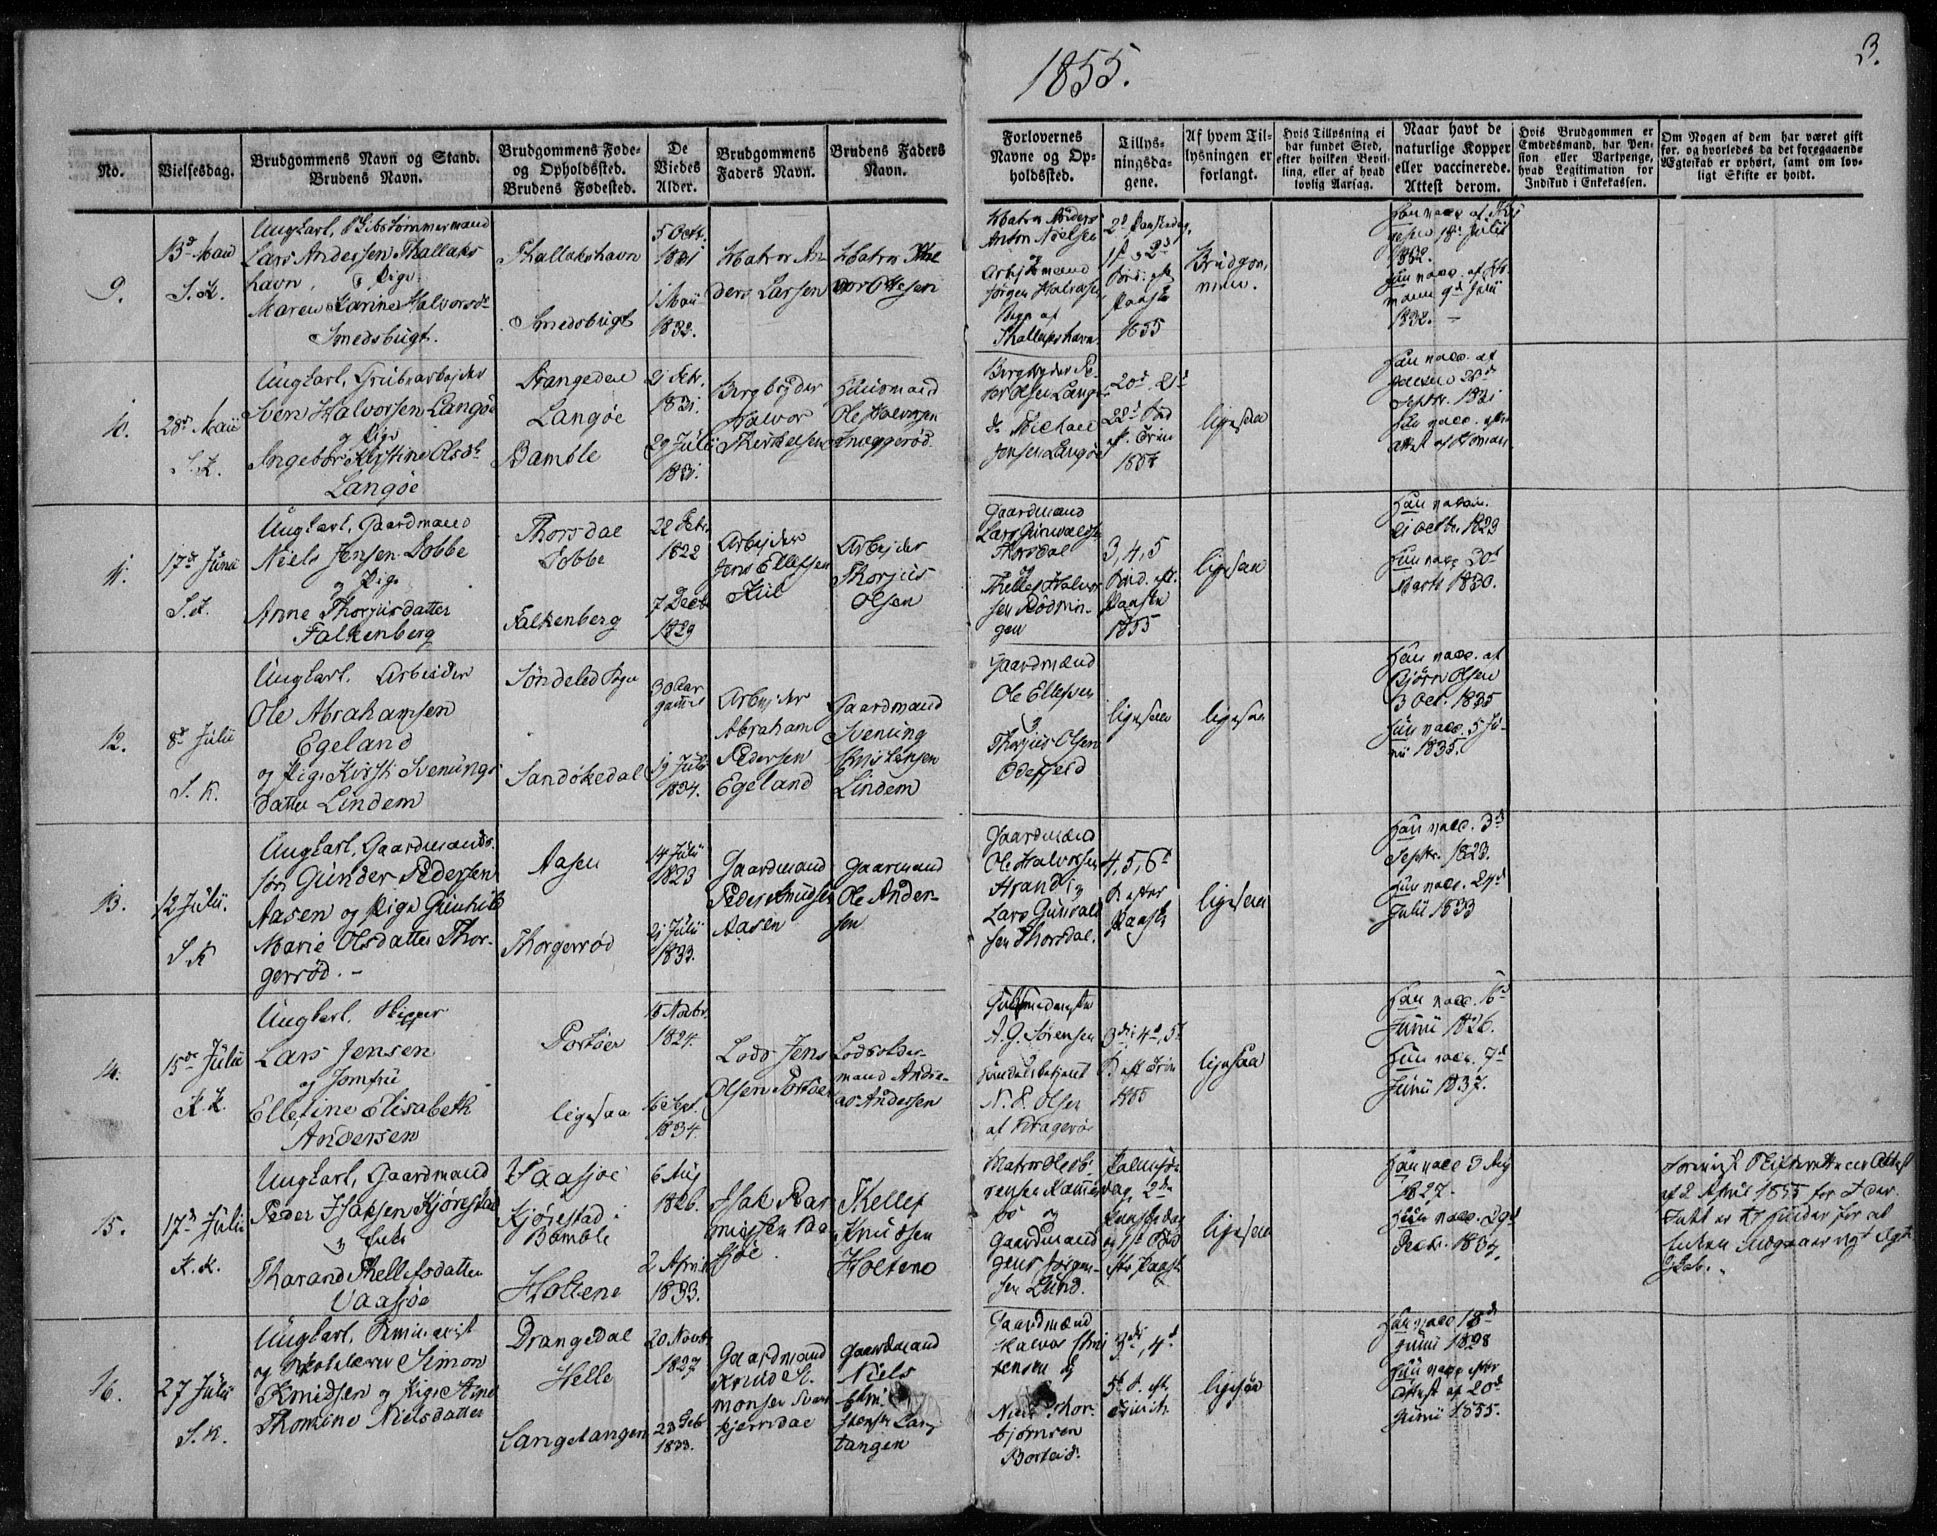 1855.
3.
No.
Vielsesdag.
Brudgommens Navn og Stand.
Brudens Navn.
Brudgommens Føde-
og Opholdssted.
Brudens Fødested.
De
Viedes
Alder.
Brudgommens
Faders Navn.
Brudens Faders
Navn.
Forlovernes
Navne og Op-
holdssted.
Tillys-
ningsda-
gene.
Af hvem Til-
lysningen er
forlangt.
Hvis Tillysning ei
har fundet Sted,
efter hvilken Bevil-
ling, eller af hvad
lovlig Aarsag.
Naar havt de
naturlige Kopper
eller vaccinerede.
Attest derom.
Hvis Brudgommen er
Embedsmand, har Pen-
sion eller Vartpenge,
hvad Legitimation for
Indskud i Enkekassen.
Om Nogen af dem har været gift
før, og hvorledes da det foregaaende
Ægteskab er ophørt, samt om lov-
ligt Skifte er holdt.
9.
13de Maii
S. K.
Ungkarl,
Lars Andersen Thallaks
havn, & Pige
Maren Karine Halvorsdr
Smedsbugt.
Thallakshavn
Smedsbugt
5 Octr.
1831
1 Maii
1832.
Matros An
ders Larsen
Matros Hal
vor Olsen
Anton Nielsen
Arbejdsmand
Jørgen
af
Thallakshavn
2d Paaskedag,
Paaske
1855
Brudgom,
men.
Han vacc. af
18de Julii
1832.
Hun vacc. af
9d Junii
1838.
10.
28de Maii
S. K.
Ungkarl, Grubearbejder
Sven Halvorsen Langøe
og Pige
Ingebor Kirstine Olsdr
Langøe
Drangedal
Langøe
Bamble
1831
29 Julii
1831.
Bergbryder
Halvor
Huusmand
Ole Halvorsen
Snæggerød
Bergbryder
Olsen Langø
do Michael
Jensen Langøe
20d, 21d
22d
ef. Trin
ligesaa
Han vacc. af
Septr. 1831
Hun vacc. efter
Attest af
11.
17de Junii
S. K.
Ungkarl, Gaardmand
Niels Jensen Dobbe
og Pige
Anne Thorjusdatter
Falkenberg
Thorsdal
Dobbe
Falkenberg
22 Febr.
1822
7 Decb
1829
Arbejder
Jens Ellefsen
Kiil
Arbejder
Thorjus
Olsen
Gaardmand
Lars Gunvaldsen
Thorsdal
og
Thellef Halvor
sen Rødmin-
gen
3, 4, 5
Sønd. eft.
Paaske
1855
ligesaa
Han vacc.
21 Octbr. 1823
Hun vacc 30d
Marts 1830.
12.
8de Julii
S. K.
Ungkarl. Arbeider
Ole Abrahamsen
Egeland
og Pige Kirsti Svenungs
datter Lindem
Søndeled Sogn
Sandøkedal
30 Aar
gammel
19 Julii
1834.
Arbejder
Abraham
Pedersen
Egeland
Gaardmand
Svenung
Christensen
Lindem
Gaardmænd
Ole Ellefsen
&
Thorjus Olsen
Ødefjeld
ligesaa
ligesaa
Han vacc. af
Bjørn Olsen
3 Oct. 1835
Hun vacc. 5 Ju-
nii 1835.
13.
12 Julii.
S. K
Ungkarl, Gaardmands-
søn Gunder Pedersen
Aasen og Pige Gunhild
Marie Olsdatter Thor-
gerrød. -
Aasen
Thorgerrød
14 Julii
1823
21 Julii
1833.
Gaardmand
Peder Knudsen
Aasen
Gaarmand
Ole Ander-
sen
Gaardmænd
Ole Halvorsen
Strand &
Lars Gunvald
sen Thorsdal.
4, 5, 6d
S. efter
Paaske
ligesaa
Han vacc. 3d
Septr. 1823.
Hun vacc. 24d
Julii 1833
14.
15de Julii
K. K.
Ungkarl. Skipper
Lars Jensen
og Jomfru
Elletine Elisabeth
Andersen
Portøer
ligesaa
15 Novbr.
1824.
16 Sept.
1834.
Lods Jens
Olsen Portøer
Lodsolder-
mand Andre-
as Andersen
A. G. Sørensen
&
N. E. Olsen
af Kragerøe
3de, 4d, 5d
S. eft Trin
1855
ligesaa
Han vacc. 16d
Junii 1826.
Hun vacc. 7d
Junii 1837.
15.
17de Julii
K. K.
Ungkarl, Gaardmand
Peder Isaksen Kjørestad
& Enke
Tharand Thellefsdatter
Vaasjøe
Vaasjøe
Kjørestad i
Bamble
Holtene
6 Aug
1826.
2 April
1833.
Isak Ras
mussen Vaa
sjøe.
Thellef
Knudsen
Holtene
og
Gaardmand
Jens Jørgen-
sen Lund.
Palmesøn
dag, 2den
Paaskedag
og 1st Sønd
eftr Paaske
ligesaa
Han vacc 3 Aug
1827.
Hun vacc. 29d
Decbr. 1834.
Attest
af 2 April 1855 for at der
Intet er til Hinder for at
Enken indgaaer nyt Ægte-
skab.
16.
27 Julii
S. K.
Ungkarl, Seminarist
og Skolelærer Simon
Knudsen og Pige Anne
Thomine Nielsdatter
Drangedal
Helle
Langetangen
20 Novbr
1827
23 Feb
1833.
Gaardmand
Knud Si-
monsen
Gaardmand
Niels
Chri-
stensen Lang
tangen
Gaardmænd
Halvor Chris
tensen &
Niels Thor-
bjørnsen
3de, 4d
5d S. eft.
Trinit.
ligesaa
Han vacc 18de
Junii 1828
Hun vacc efter
Attest af 20d
Junii 1855.